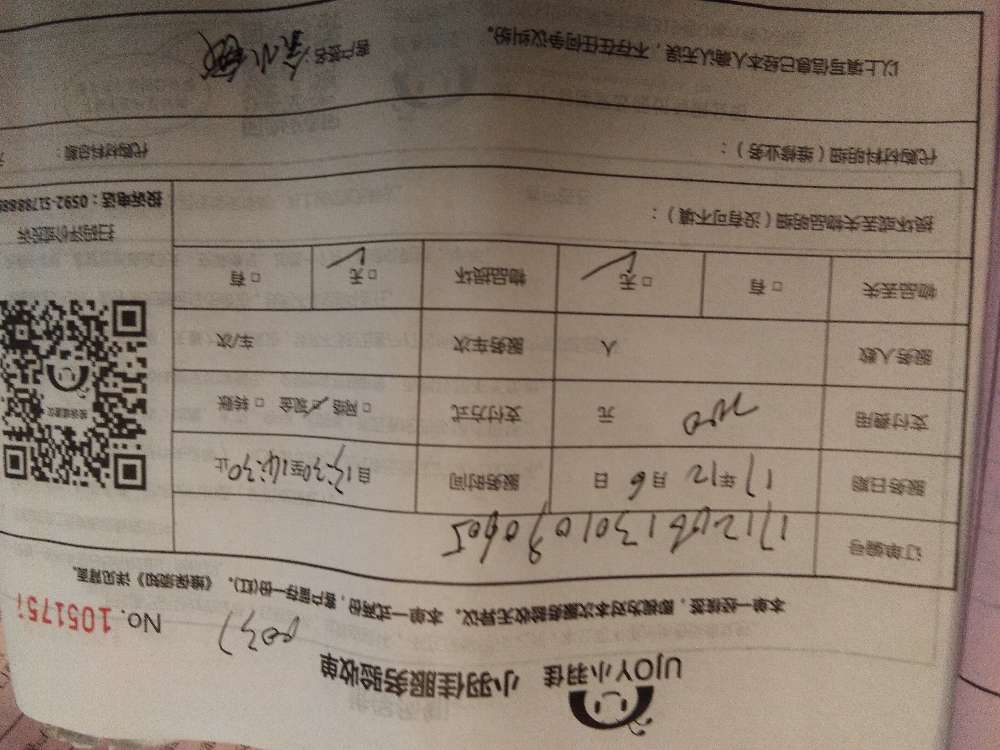 UJOY小羽佳 小羽佳服务验收单
No. 105175
本单一经续签，即视为对本次服务验收无异议。本单一式两份，客户留存一份(红)。《维保须知》详见背面。
订单编号
服务日期 17年12月6日 服务时间 自13:30至14:30止
支付费用 元 支付方式 □网络 □现金 □转账
服务人数 人 服务车次 车/次
物品丢失 □有 □无 物品损坏 □无 □有
损坏或丢失物品明细（没有可不填）：
扫码评价或投诉
投诉电话：0592-5178888
代购材料明细（维修业务）： 代购材料总额：
以上填写信息已经本人确认无误，不存在任何争议纠纷。 客户签名：